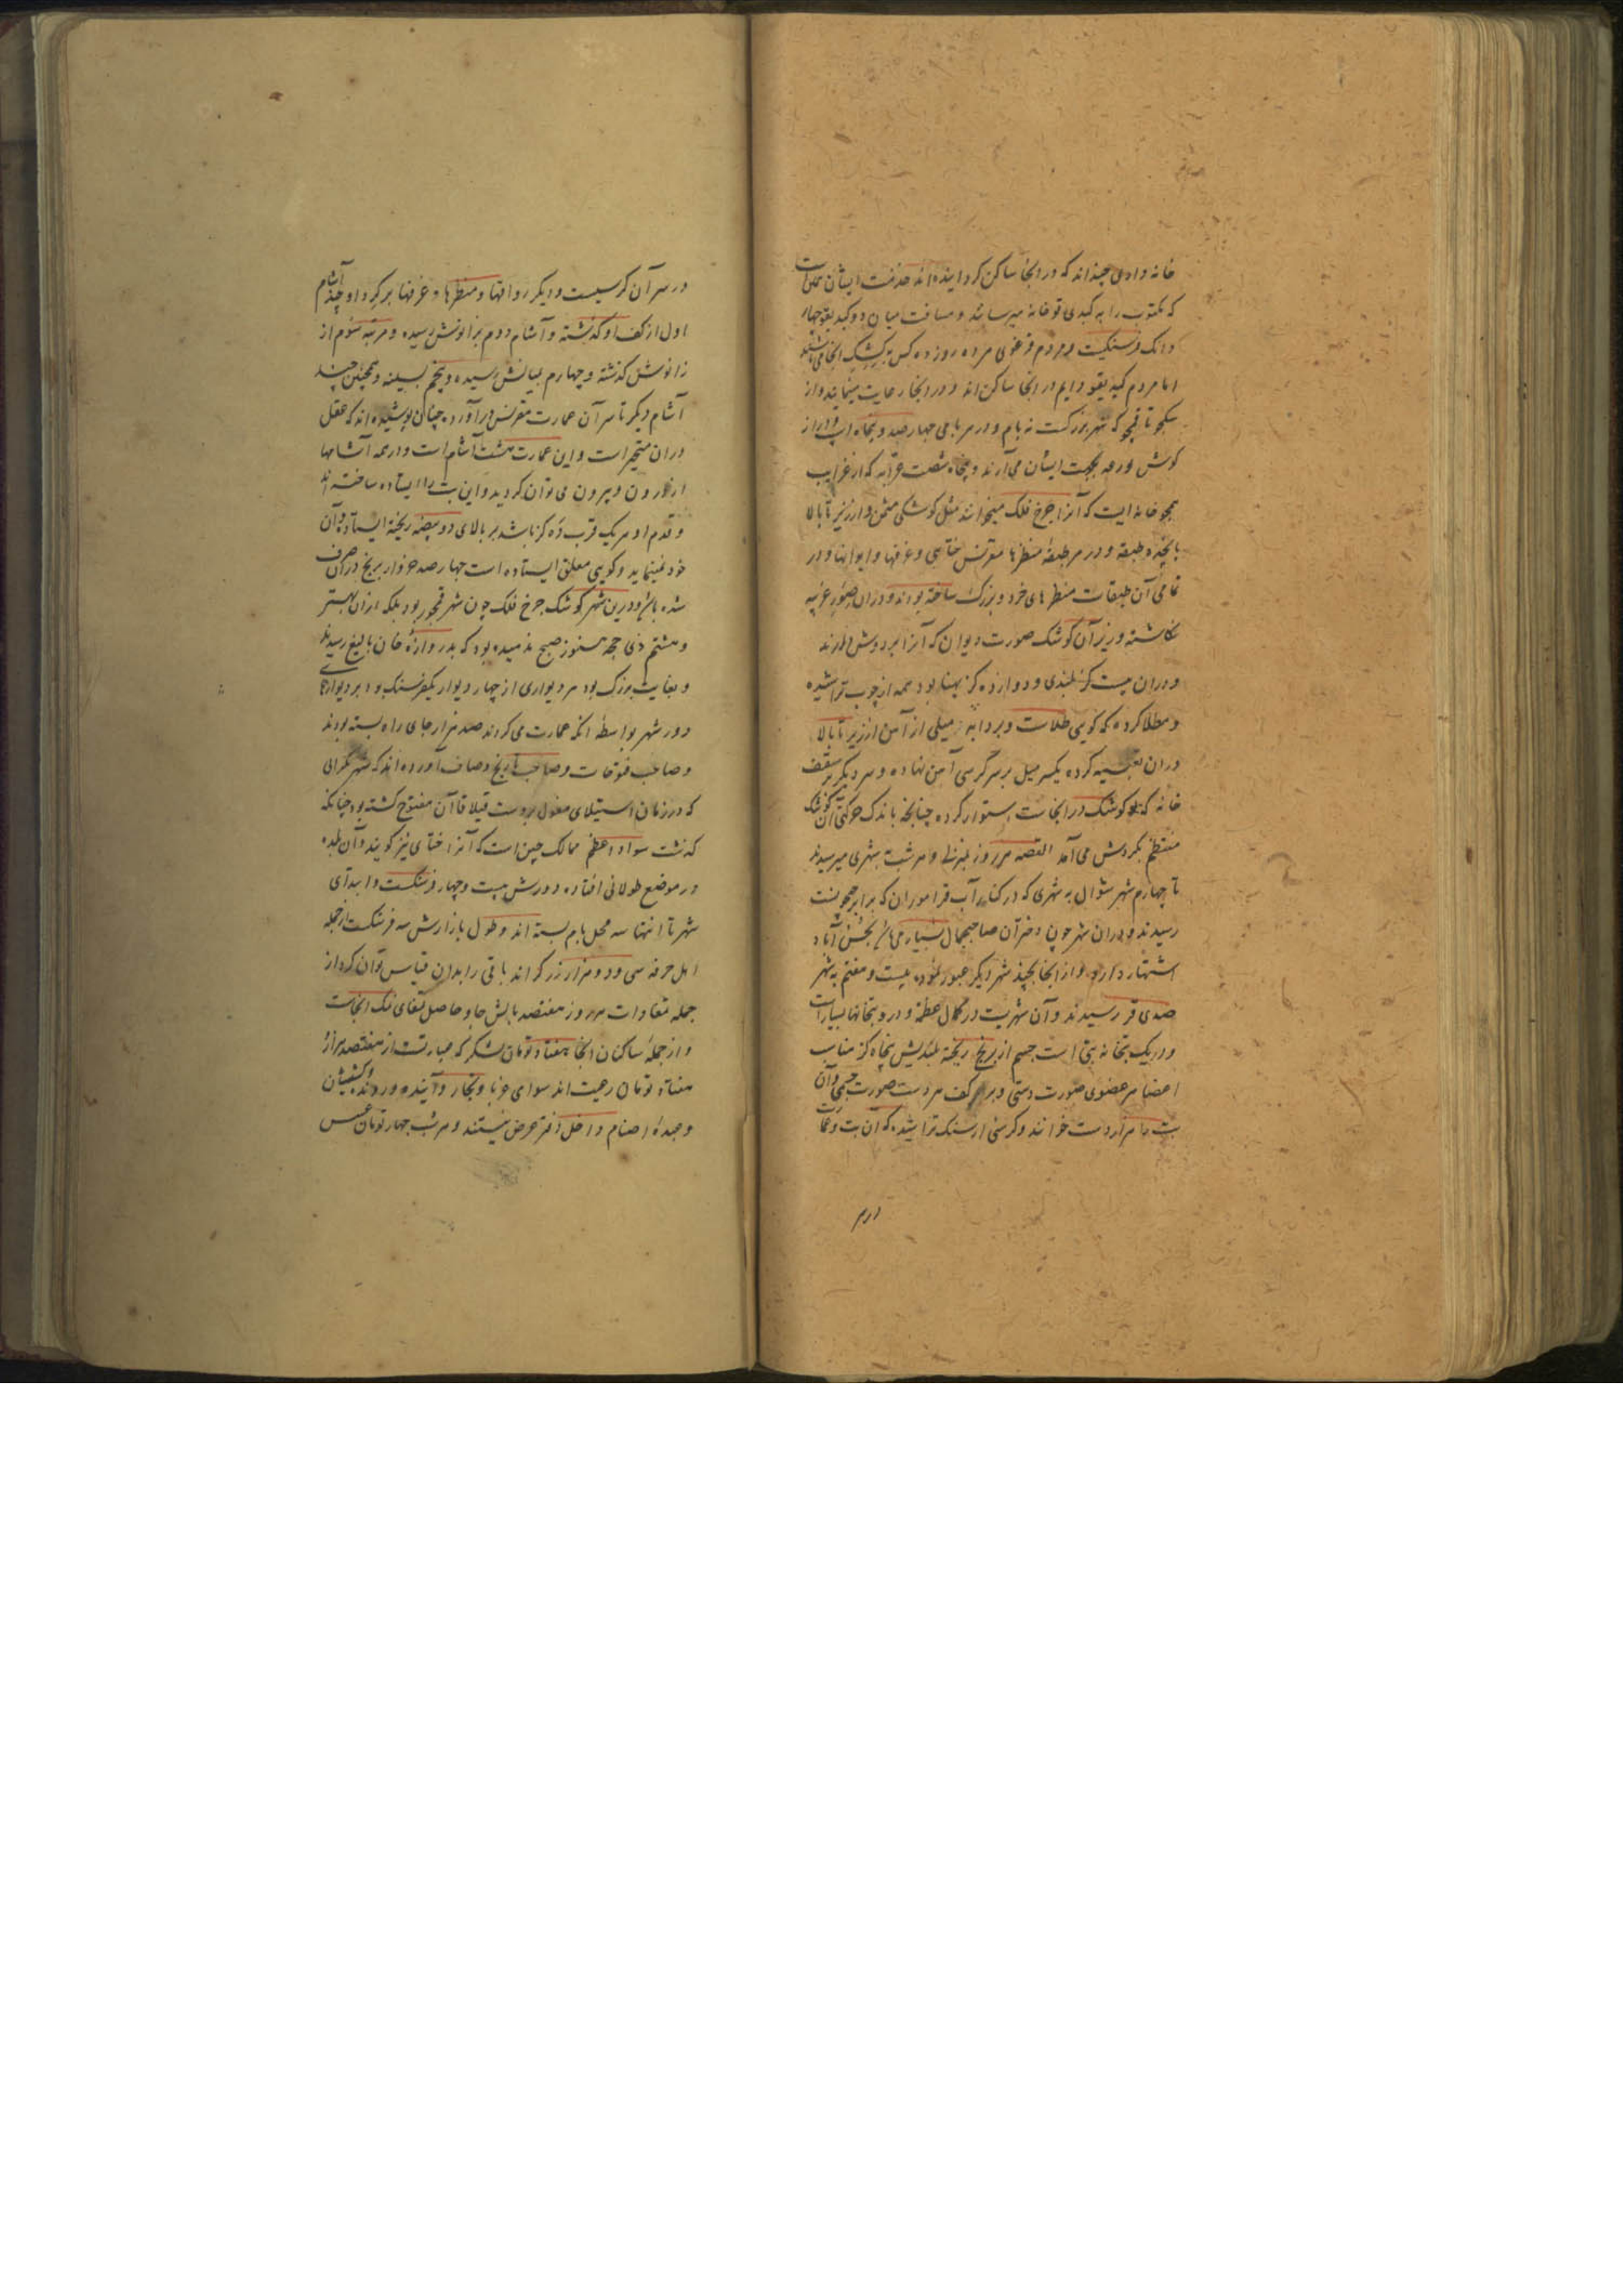 خانه داری چند اند که در انجا ساکن کردانیده اند خدمت ایشان همان است
که مکتوب را به کیدی قوخانه میرسانند و مسافت میان دو کیدیقو چهار
دانک فرسنکیست و مردم قرغوی هر ده روز ده کس به کشیک انجا می باشند
اما مردم کیدیقو دایم در انجا ساکن اند و در انجا رعایت مینمایند و از
سکجو تا قمجو که شهر بزرکست نه یام و در هر یامی چهارصد و پنجاه اسپ و دراز
کوش و رهه بجهت ایشان می آرند و پنجاه شصت عرابه که از غرایب
قمجو خانه ایست که آنرا چرخ فلک میخوانند مثل کوشکی مثمن و از زیر تا بالا
پانزده طبقه و در هر طبقه منظرها مقرنس ختایی و غرفها و ایوانها و در
تمامی آن طبقات منظرهای خرد و بزرک ساخته بودند و دران صور غریبه
نکاشته و زیر آن کوشک صورت دیوان که آنرا بر دوش دارند
و دران بیست کز بلندی و دوازده کز پهنا بود همه از چوب تراشیده
و مطلا کرده که کویی طلاست و میلی از آهن از زیر تا بالا
دران تعبیه کرده یکسر میل بر سر کرسی آهن نهاده و سر دیکر بر سقف
خانه که کوشک در انجاست استوار کرده چنانچه باندک حرکتی آن کوشک
منتظم بکردش می آمد القصه هر روز بمنزلی و هر شب به شهری میرسیدند
تا چهارم شهر شوال به شهری که در کنار آب قراموران که برابر جیحونست
رسیدند و دران شهر چون دختران صاحبجمال بسیار می باشند بحسن آباد
اشتهار دارد و از انجا بچند شهر دیکر عبور نموده بیست و هفتم به شهر
صدی قر رسیدند و آن شهریست در کمال عظمت و درو بتخانها بسیار است
و در یک بتخانه بتی است جسیم از برنج ریخته بلندیش پنجاه کز متناسب
اعضا بر هر عضوی صورت دستی و بر کف هر دست صورت چشمی و آن
بت را هزاردست خوانند و کرسی از سنک تراشیده که آن بت و عمارت
در سر
در سر آن کرسیست و دیکر رواقها و منظرها و غرفها بر کرد او چند آشام
اول از کعب او کذشته و آشام دوم بزانوش رسیده و مرتبه سوم از
زانوش کذشته و چهارم بمیانش رسیده و پنجم بسینه و همچنین چند
آشام دیکر تا سر آن عمارت مقرنس برآورده چنان پوشیده اند که عقل
دران متحیر است و این عمارت هشت آشام است و در همه آشامها
از درون و بیرون می توان کردید و این بت را ایستاده ساخته اند
و قدم او هر یک قرب ده کز باشد بر بالای دو پیضه ریخته ایستاده و آن
خود نمینماید و کویی معلق ایستاده است چهارصد خروار برنج دران صرف
شده باشد و درین شهر کوشک چرخ فلک چون شهر قمجو بود بلکه ازان بهتر
و هشتم ذی حجه هنوز صبح ندمیده بود که بدروازه خان بالیغ رسیدند
و بغایت بزرک بود هر دیواری از چهار دیوار یکفرسنک بود بر دیوارهای
دور شهر بواسطه انکه عمارت می کردند صد هزار جای راه بسته بودند
و صاحب فتوحات و صاحب تاریخ وصاف آورده اند که شهر
که در زمان استیلای مغول بدست قبلا قاآن مفتوح کشته بود چنانکه
کذشت سواد اعظم ممالک چین است که آنرا ختای نیز کویند و آن بلده
در موضع طولانی افتاده دورش بیست و چهار فرسنکست و ابتدای
شهر تا انتها سه محل یام بسته اند و طول بازارش سه فرسنکست از جمله
اهل حرفه سی و دو هزار زرکر اند باقی را بدان قیاس توان کرد از
جمله تمغاوات هر روز هفتصد بالش چاو حاصل تمغای نمک انجاست
و از جمله ساکنان انجا هفتاد تومان لشکر که عبارتست از هفتصد هزار
هفتاد تومان رعیت اند سوای غربا و تجار و آینده و رونده و کشیشان
و عبده اصنام داخل دفتر عرض نیستند و هر شب چهار تومان عسس